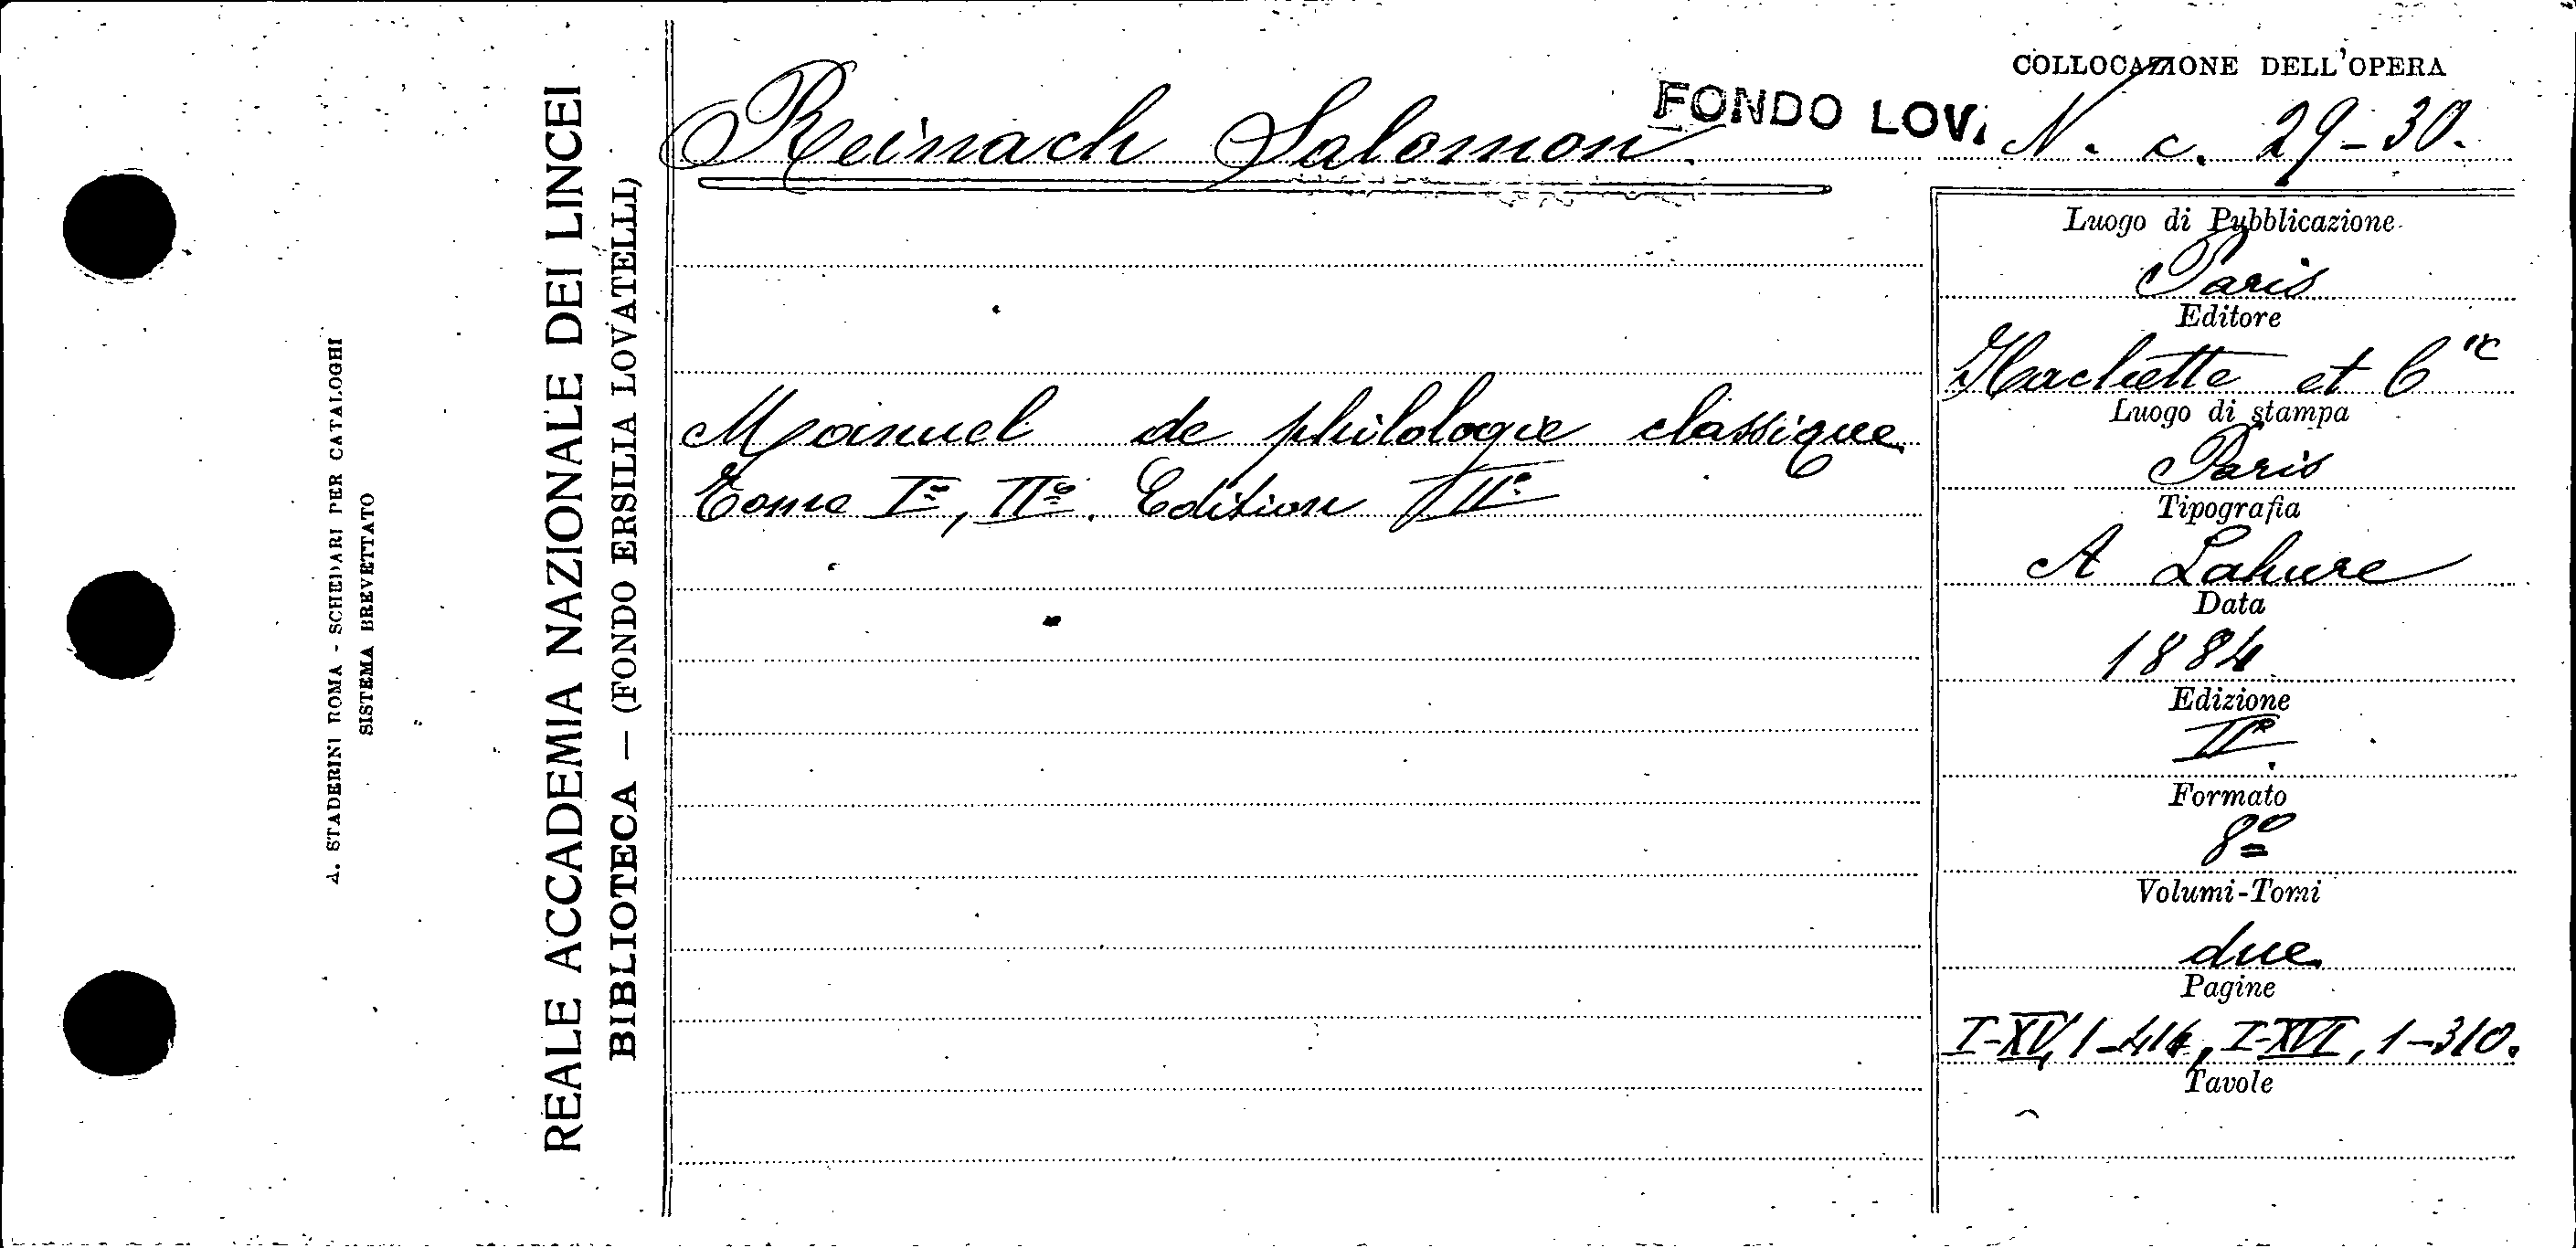 A. STADERINI ROMA - SCHEDARI PER CATALOGHI
SISTEMA BREVETTATO
REALE ACCADEMIA NAZIONALE DEI LINCEI
BIBLIOTECA — (FONDO ERSILIA LOVATELLI)
Reinach Salomon.
FONDO LOV.
Manuel de philologie classique
Tome Iº, IIº. Edition IIº
COLLOCAZIONE DELL'OPERA
N. c. 29-30.
Luogo di Pubblicazione
Paris
Editore
Hachette et Cie
Luogo di stampa
Paris
Tipografia
A Lahure
Data
1884
Edizione
IIº
Formato
8º
Volumi-Tomi
due
Pagine
I-XV, 1-414, I-XVI, 1-310.
Tavole